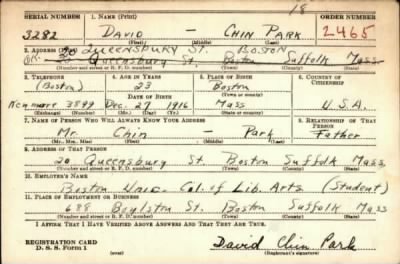 18
SERIAL NUMBER 1. NAME (Print) ORDER NUMBER
3282 DAVID — CHIN PARK 2465
(First) (Middle) (Last)
20 QUEENSBURY ST. BOSTON
2. ADDRESS (Print)
20 Queensbury St. Boston Suffolk Mass.
(Number and street or R. F. D. number) (Town) (County) (State)
3. TELEPHONE 4. AGE IN YEARS 5. PLACE OF BIRTH 6. COUNTRY OF CITIZENSHIP
(Boston) 23 Boston
DATE OF BIRTH (Town or county)
Kenmore 3899 Dec. 27 1916 Mass U.S.A.
(Exchange) (Number) (Mo.) (Day) (Yr.) (State or country)
7. NAME OF PERSON WHO WILL ALWAYS KNOW YOUR ADDRESS 8. RELATIONSHIP OF THAT PERSON
Mr. Chin — Park Father
(Mr., Mrs., Miss) (First) (Middle) (Last)
9. ADDRESS OF THAT PERSON
20 Queensbury St. Boston Suffolk Mass
(Number and street or R. F. D. number) (Town) (County) (State)
10. EMPLOYER'S NAME
Boston Univ- Col. of Lib. Arts (Student)
11. PLACE OF EMPLOYMENT OR BUSINESS
688 Boylston St. Boston Suffolk Mass
(Number and street or R. F. D. number) (Town) (County) (State)
I AFFIRM THAT I HAVE VERIFIED ABOVE ANSWERS AND THAT THEY ARE TRUE.
REGISTRATION CARD
D. S. S. Form 1
David Chin Park
(Registrant's signature)